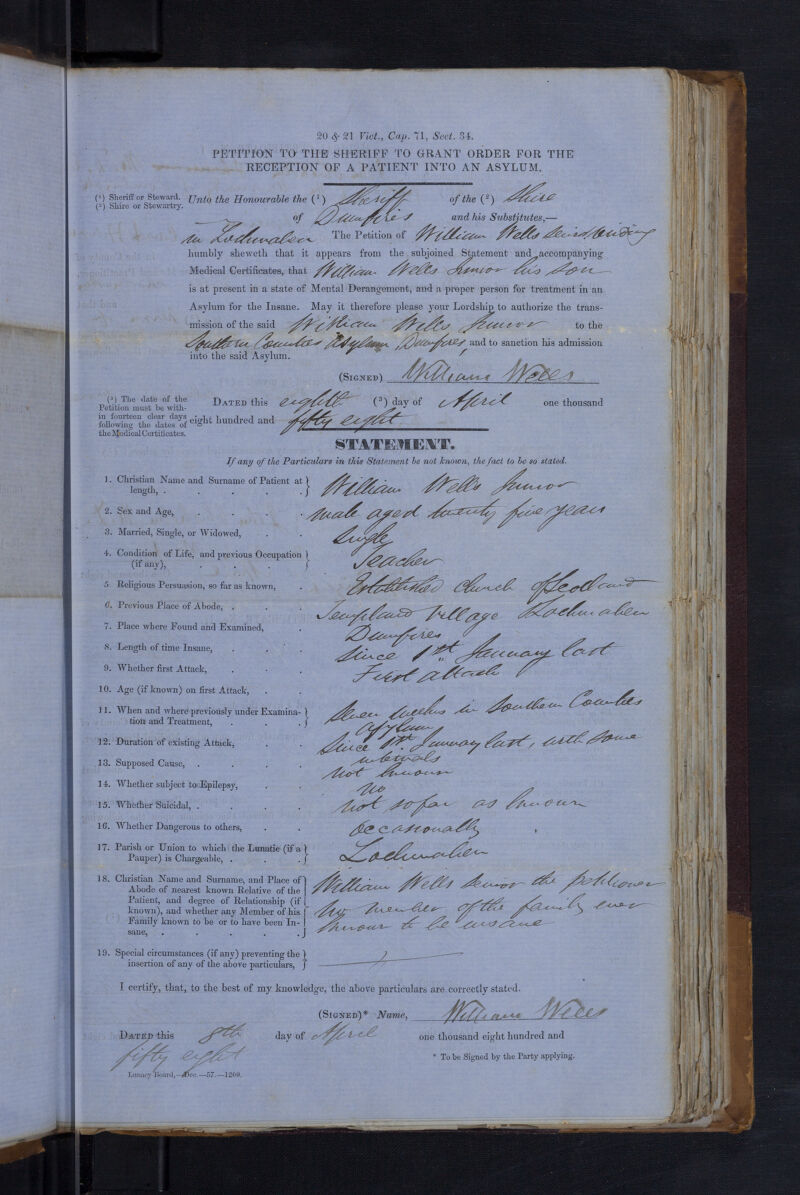 20 & 21 Vict., Cap. 71, Sect. 34.
PETITION TO THE SHERIFF TO GRANT ORDER FOR THE
RECEPTION OF A PATIENT INTO AN ASYLUM.
(1) Sheriff or Steward.
(2) Shire or Stewartry.
Unto the Honourable the (1) Sheriff of the (2) Shire
of Dumfries and his Substitutes,—
The Petition of William Wells Senior residing
in Lochmaben
humbly sheweth that it appears from the subjoined Statement and accompanying
Medical Certificates, that William Wells Junior his son
is at present in a state of Mental Derangement, and a proper person for treatment in an
Asylum for the Insane. May it therefore please your Lordship to authorize the trans-
mission of the said William Wells Junior to the
Southern Counties Asylum Dumfries, and to sanction his admission
into the said Asylum.
(SIGNED) William Wells
(3) The date of the
Petition must be with-
in fourteen clear days
following the dates of
the Medical Certificates.
DATED this eighth (3) day of April one thousand
eight hundred and fifty eight
STATEMENT.
If any of the Particulars in this Statement be not known, the fact to be so stated.
1. Christian Name and Surname of Patient at
length, . . . . William Wells Junior
2. Sex and Age, . . . . male aged twenty five years
3. Married, Single, or Widowed, . . Single
4. Condition of Life, and previous Occupation
(if any), . . . . Teacher
5. Religious Persuasion, so far as known, . Established Church of Scotland
6. Previous Place of Abode, . . . Templand Village Lochmaben
7. Place where Found and Examined, . Dumfries
8. Length of time Insane, . . . since 1st January last
9. Whether first Attack, . . . First attack
10. Age (if known) on first Attack, . .
11. When and where previously under Examina-
tion and Treatment, . . . Seven weeks in Southern Counties
Asylum
12. Duration of existing Attack, . . since 1st January last, with some
intervals
13. Supposed Cause, . . . . not known
14. Whether subject to Epilepsy, . . No
15. Whether Suicidal, . . . . not so far as known
16. Whether Dangerous to others, . . occasionally
17. Parish or Union to which the Lunatic (if a
Pauper) is Chargeable, . . . Lochmaben
18. Christian Name and Surname, and Place of
Abode of nearest known Relative of the
Patient, and degree of Relationship (if
known), and whether any Member of his
Family known to be or to have been In-
sane, . . . . .
William Wells Senior the petitioner
No member of the family ever
known to be insane
19. Special circumstances (if any) preventing the
insertion of any of the above particulars,
I certify, that, to the best of my knowledge, the above particulars are correctly stated.
(SIGNED)* Name, William Wells
DATED this 8th day of April one thousand eight hundred and
fifty eight
* To be Signed by the Party applying.
Lunacy Board,—Dec.—57.—1200.